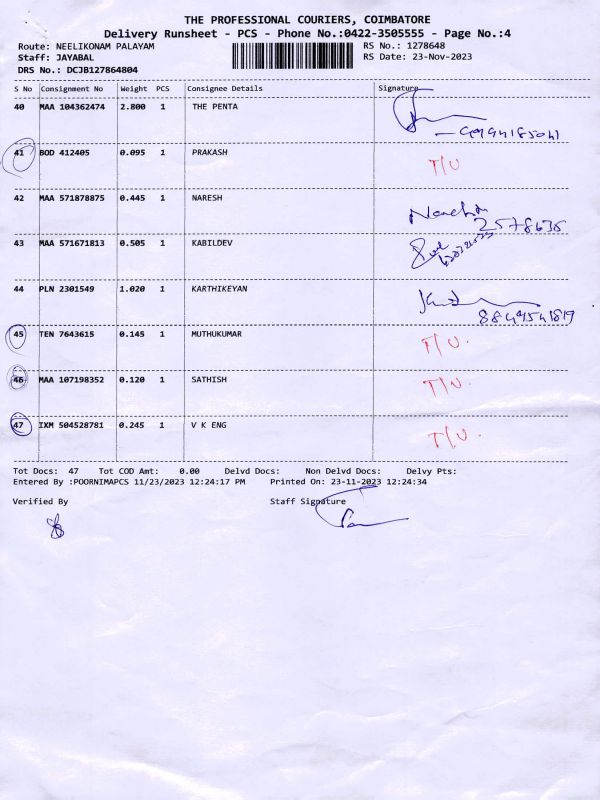 THE PROFESSIONAL COURIERS, COIMBATORE
Delivery Runsheet - PCS - Phone No.:0422-3505555 - Page No.:4
Route: NEELIKONAM PALAYAM RS No.: 1278648
Staff: JAYABAL RS Date: 23-Nov-2023
DRS No.: DCJB127864804
S No Consignment No Weight PCS Consignee Details Signature
40 MAA 104362474 2.800 1 THE PENTA
41 BOD 412405 0.095 1 PRAKASH T/U
42 MAA 571878875 0.445 1 NARESH
43 MAA 571671813 0.505 1 KABILDEV
44 PLN 2301549 1.020 1 KARTHIKEYAN
45 TEN 7643615 0.145 1 MUTHUKUMAR T/U.
46 MAA 107198352 0.120 1 SATHISH T/U.
47 IXM 504528781 0.245 1 V K ENG T/U.
Tot Docs: 47 Tot COD Amt: 0.00 Delvd Docs: Non Delvd Docs: Delvy Pts:
Entered By :POORNIMAPCS 11/23/2023 12:24:17 PM Printed On: 23-11-2023 12:24:34
Verified By Staff Signature